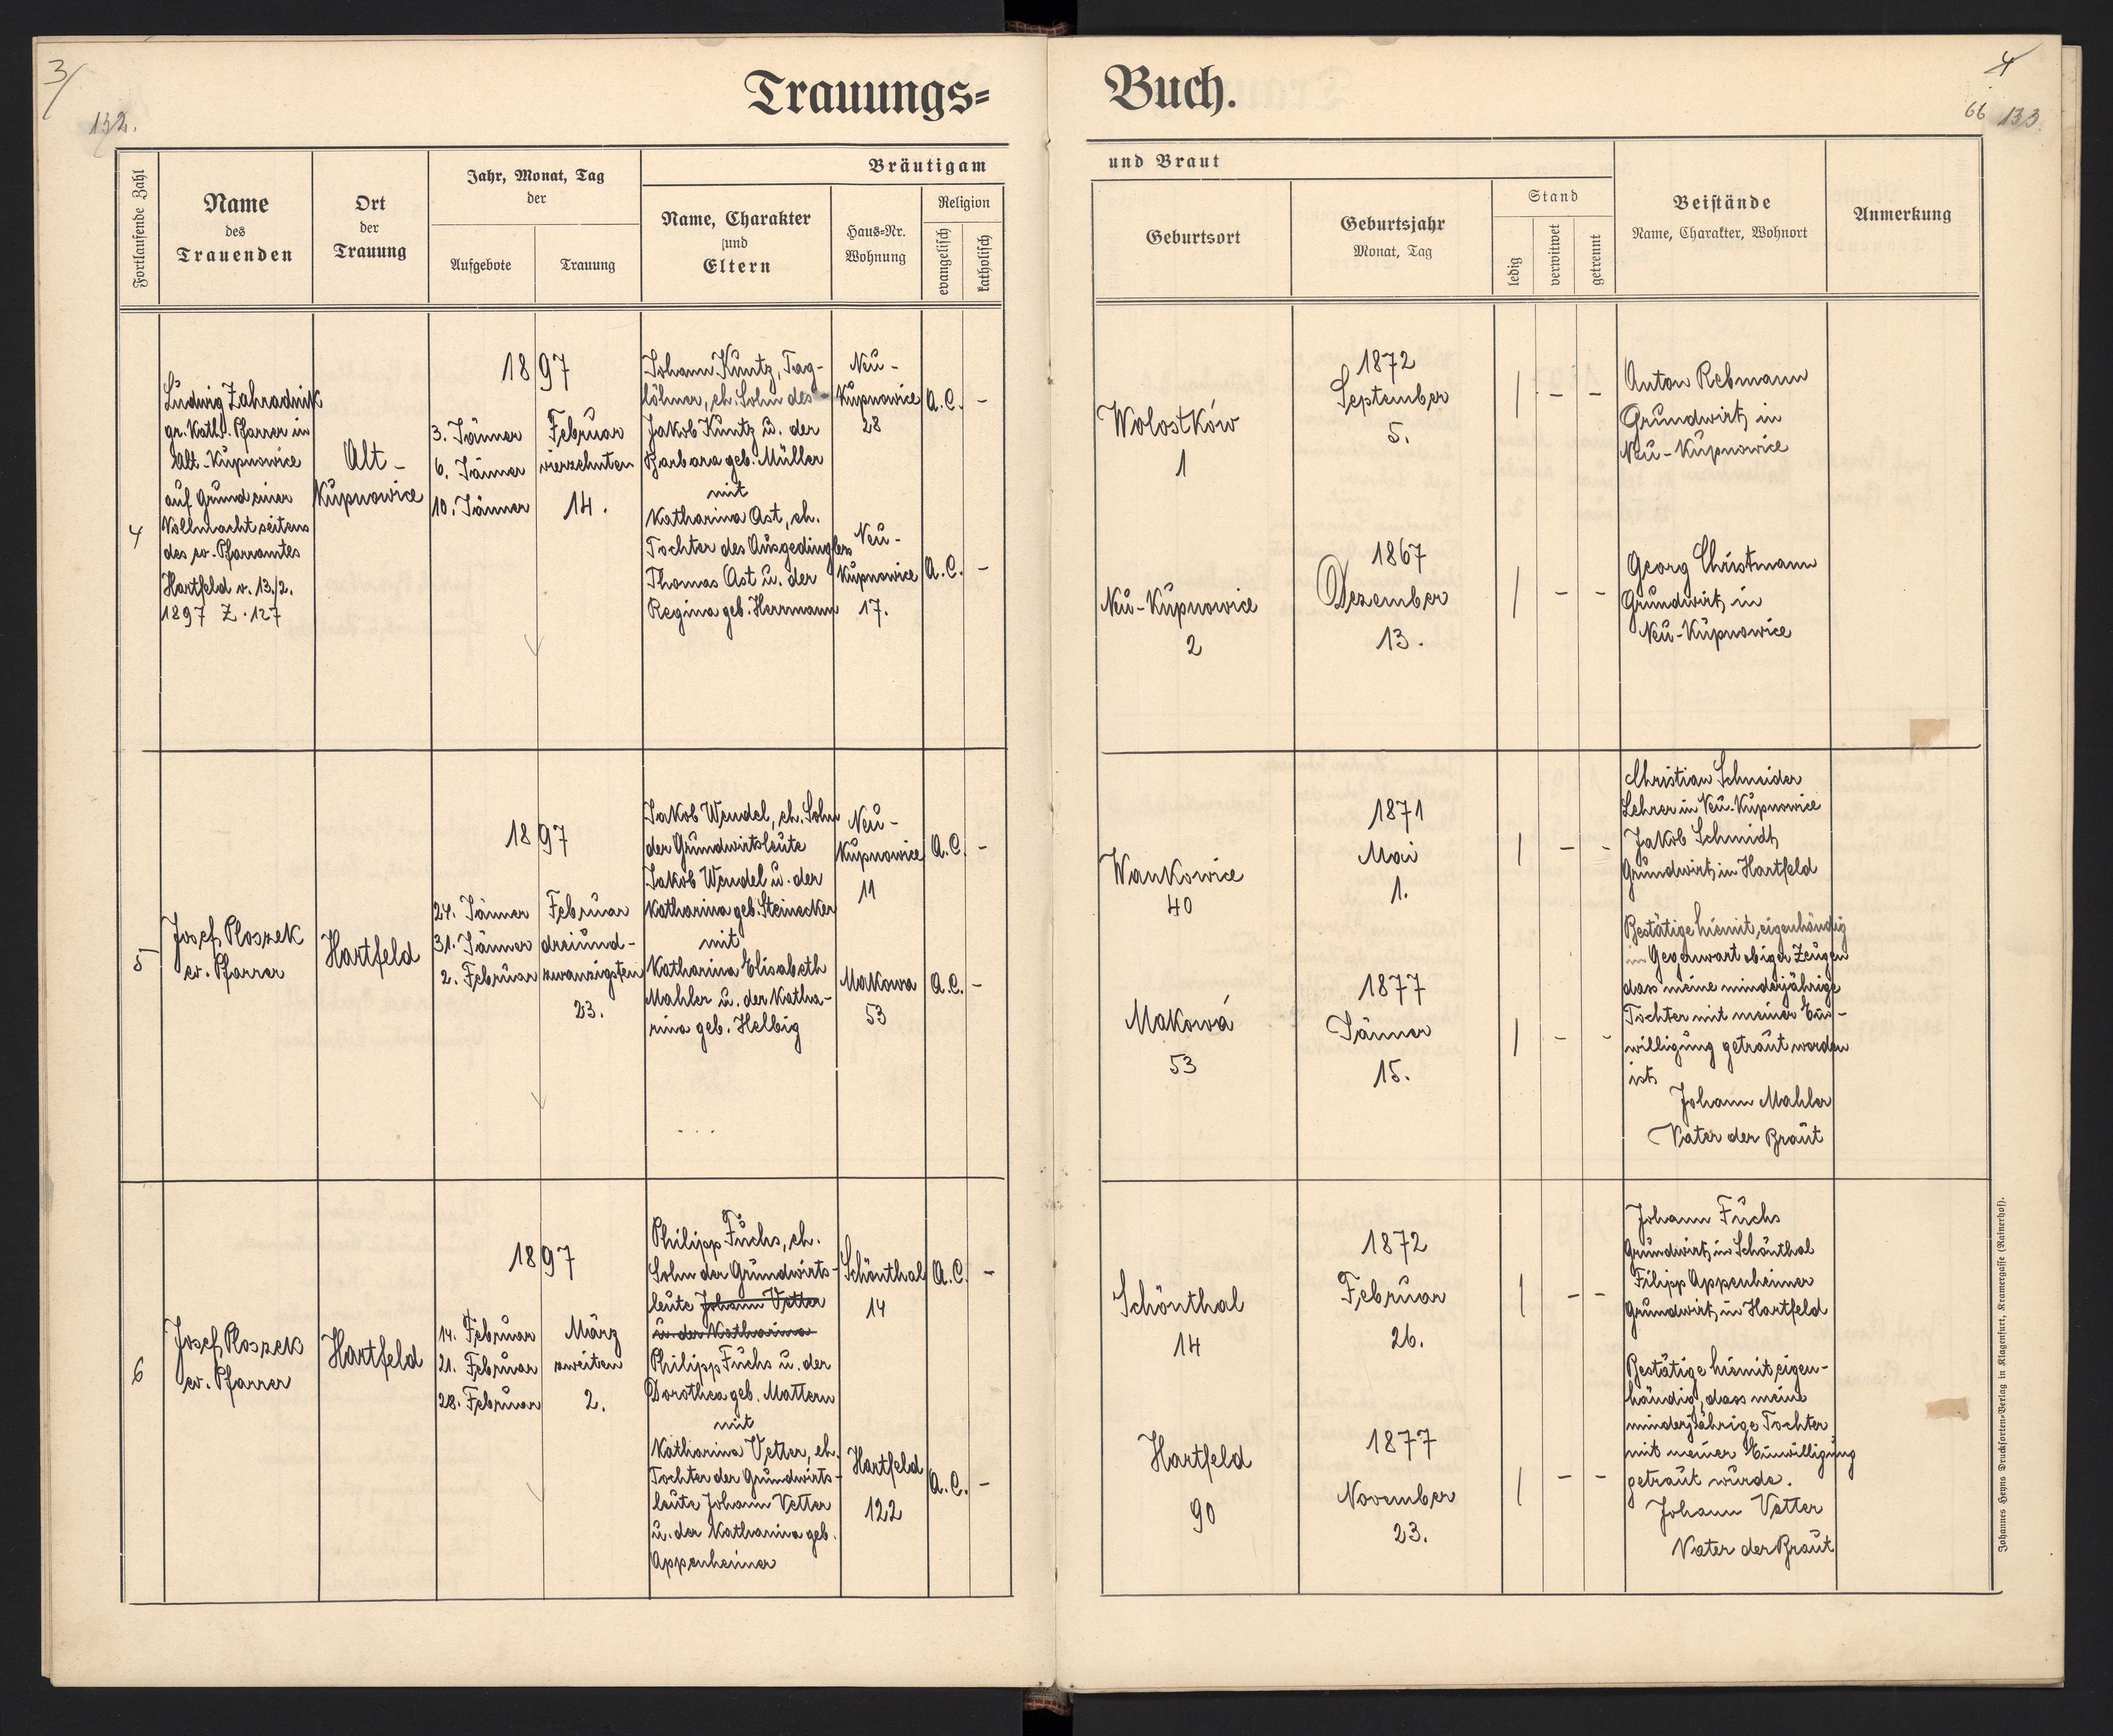 3/
132.
Trauungs=
Buch.
4
66 133.
Fortlaufende Zahl
Name
des
Trauenden
Ort
der
Trauung
Jahr, Monat, Tag
der
Aufgebote
Trauung
Bräutigam
Name, Charakter
und
Eltern
Haus=Nr.
Wohnung
Religion
evangelisch
katholisch
und Braut
Geburtsort
Geburtsjahr
Monat, Tag
Stand
ledig
verwitwet
getrennt
Beistände
Name, Charakter, Wohnort
Anmerkung
4
Ludwig Zahradnik
gr. Kath. Pfarrer in
Alt-Kupnowice
auf Grund einer
Vollmacht seitens
des ev. Pfarramtes
Hartfeld v. 13./2.
1897 Z. 127
Alt-
Kupnowice
1897
3. Jänner
6. Jänner
10. Jänner
Februar
vierzehnten
14.
Johann Kuntz, Tag-
löhner, eh. Sohn des
Jakob Kuntz u. der
Barbara geb. Müller
mit
Katharina Ast, eh.
Tochter des Ausgedinglers
Thomas Ast u. der
Regina geb. Herrmann
Neu-
Kupnowice
28
Neu-
Kupnowice
17.
A.C. -
A.C. -
Wolostków
1
Neu-Kupnowice
2
1872
September
5.
1867
Dezember
13.
| - -
| - -
Anton Rebmann
Grundwirt, in
Neu-Kupnowice
Georg Christmann
Grundwirt, in
Neu-Kupnowice
5
Josef Ploszek
ev. Pfarrer
Hartfeld
1897
24. Jänner
31. Jänner
2. Februar
Februar
dreiund-
zwanzigsten
23.
Jakob Wendel, eh. Sohn
der Grundwirtsleute
Jakob Wendel u. der
Katharina geb. Steinecker
mit
Katharina Elisabeth
Mahler u. der Katha-
rina geb. Helbig
Neu-
Kupnowice
11
Makowa
53
A.C. -
A.C. -
Wankowice
40
Makowá
53
1871
Mai
1.
1877
Jänner
15.
| - -
| - -
Christian Schneider
Lehrer in Neu-Kupnowice
Jakob Schmidt,
Grundwirt, in Hartfeld
Bestätige hiemit, eigenhändig
in Gegenwart obiger Zeugen
dass meine minderjährige
Tochter mit meiner Ein-
willigung getraut worden
ist
Johann Mahler
Vater der Braut
6
Josef Ploszek
ev. Pfarrer
Hartfeld
1897
14. Februar
21. Februar
28. Februar
März
zweiten
2.
Philipp Fuchs, eh.
Sohn der Grundwirts-
leute Johann Vetter
u. der Katharina
Philipp Fuchs u. der
Dorothea geb. Mattern
mit
Katharina Vetter, eh.
Tochter der Grundwirts-
leute Johann Vetter
u. der Katharina geb.
Appenheimer
Schönthal
14
Hartfeld
122
A.C. -
A.C. -
Schönthal
14
Hartfeld
90
1872
Februar
26.
1877
November
23.
| - -
| - -
Johann Fuchs
Grundwirt, in Schönthal
Filipp Appenheimer
Grundwirt, in Hartfeld
Bestätige hiemit, eigen-
händig, dass meine
minderjährige Tochter
mit meiner Einwilligung
getraut wurde.
Johann Vetter
Vater der Braut
Johannes Heyns Drucksorten=Verlag in Klagenfurt, Kramergasse (Rainerhof).